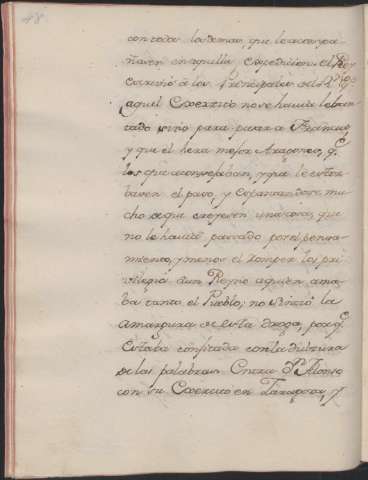 48
con todos los demas que le acompa-
ñaven en aquella expedicion. el Rey
escrivió a los Principales del R.no
aquel Exercito no se havia leban-
tado sino para pasar a Francia,
y que el hera mejor Aragones, q.e
los que aconsejaban, y que le estor-
baven el paso, y Espantandose mu-
cho de que creyesen una cosa, que
no le havia pasado por el pensa-
miento, y menos el romper los pri-
vilegios a un Reyno a quien ama-
ba tanto el Pueblo; no sintió la
amargura de esta droga, por q.e
Estaba confitada con la dulzura
de las palabras. Entra D.n Alonso
con su Exercito en Tarazona, y